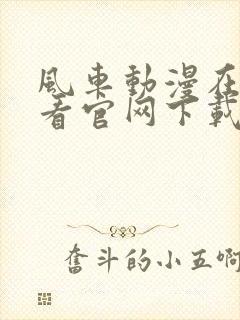 風車動漫在
看官网下載
奮斗的小五啊